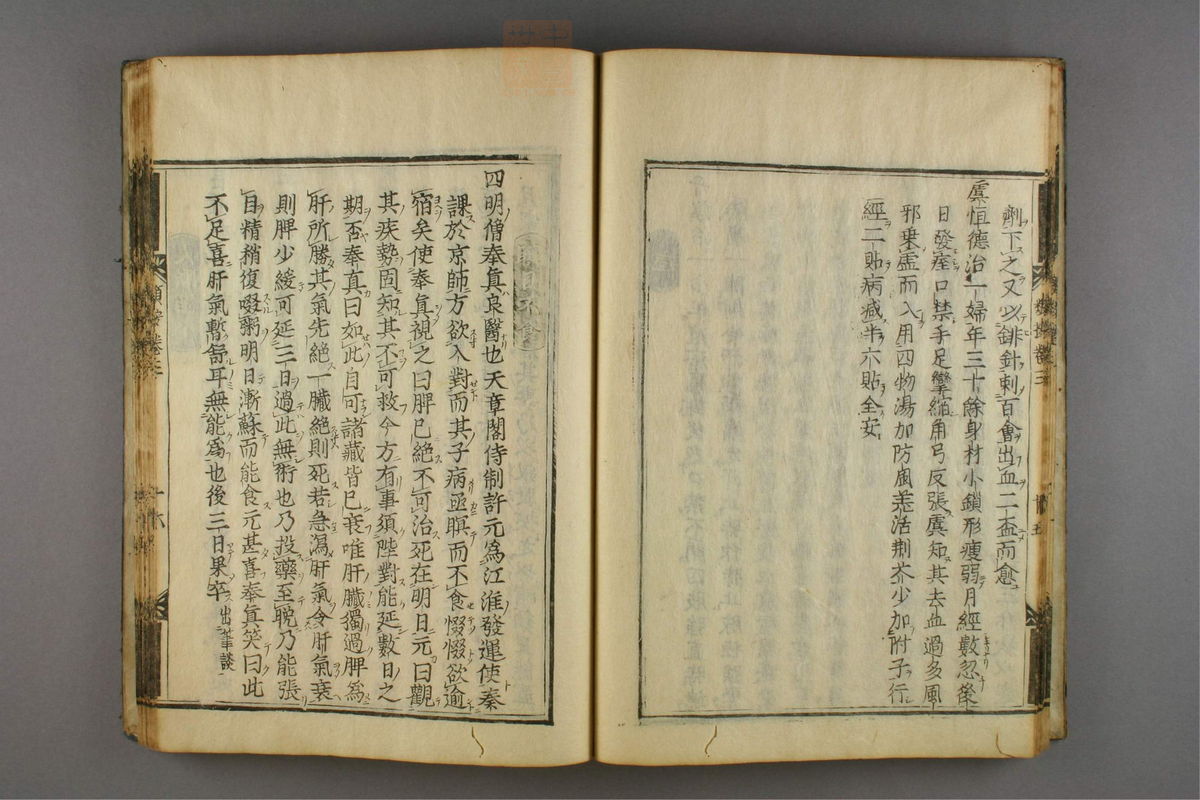 劑下之又以䤵針刺百會出血二盃而愈
虞恒德治一婦年三十餘身材小鎖形瘦弱月經數忽後
日發痙口禁手足攣縮角弓反張虞知其去血過多風
邪乗虛而入用四物湯加防風羗活荆芥少加附子行
經二貼病減半六貼全安
四明僧奉真良醫也天章閣侍制許元爲江淮發運使奏
課於京師方欲入對而其子病亟瞑而不食惙惙欲逾
宿矣使奉真視之曰脾已絶不可治死在明日元曰觀
其疾勢固知其不可救今方有事須陛對能延數日之
期否奉真曰如此自可諸藏皆已衰唯肝臓獨過脾爲
肝所勝其氣先絶一臓絶則死若急瀉肝氣令肝氣衰
則脾少緩可延三日過此無術也乃投藥至晩乃能張
目精稍復啜粥明日漸蘇而能食元甚喜奉真笑曰此
不足喜肝氣暫舒耳無能爲也後三日果卒出筆談